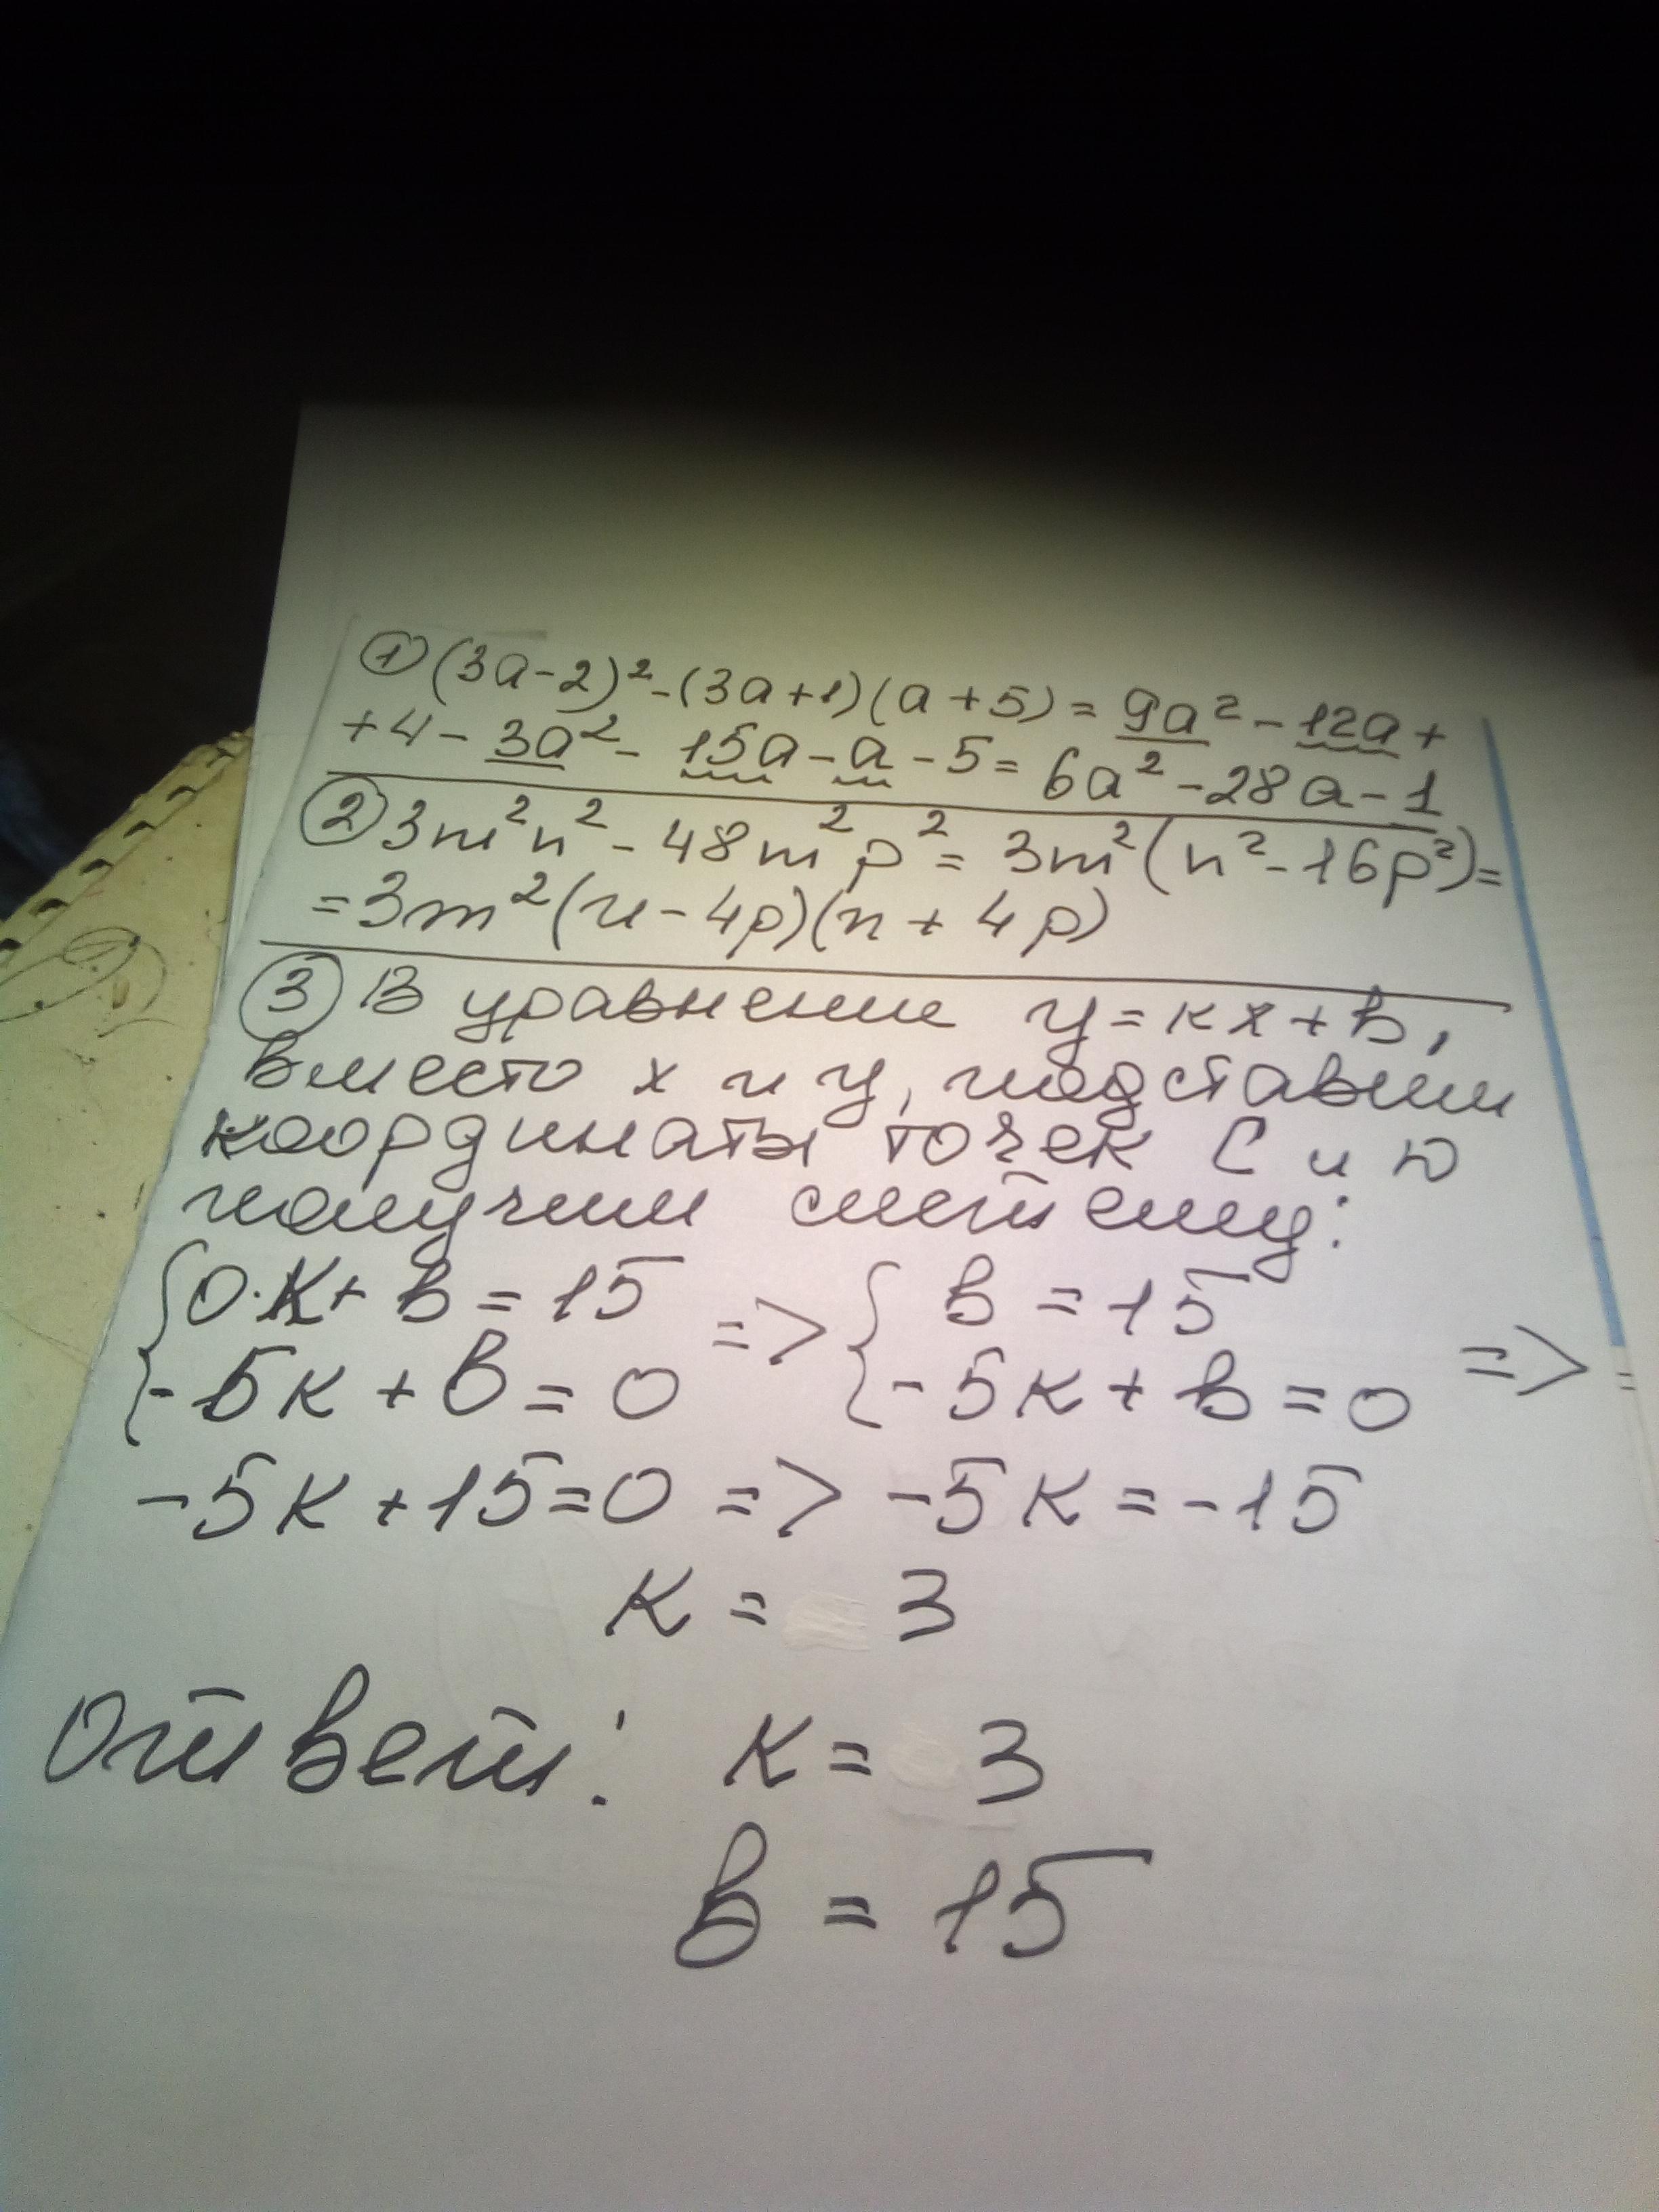 ① (3a-2)² - (3a+1)(a+5) = 9a² - 12a +
+4 - 3a² - 15a - a - 5 = 6a² - 28a - 1
② 3m²n² - 48m²p² = 3m²(n² - 16p²) =
= 3m²(n - 4p)(n + 4p)
③ В уравнение y = кx + b,
вместо x и y, подставим
координаты точек C и D
получим систему:
{0·K + b = 15 => {b = 15
{-5к + b = 0 {-5к + b = 0 =>
-5к + 15 = 0 => -5к = -15
к = 3
Ответ: к = 3
b = 15